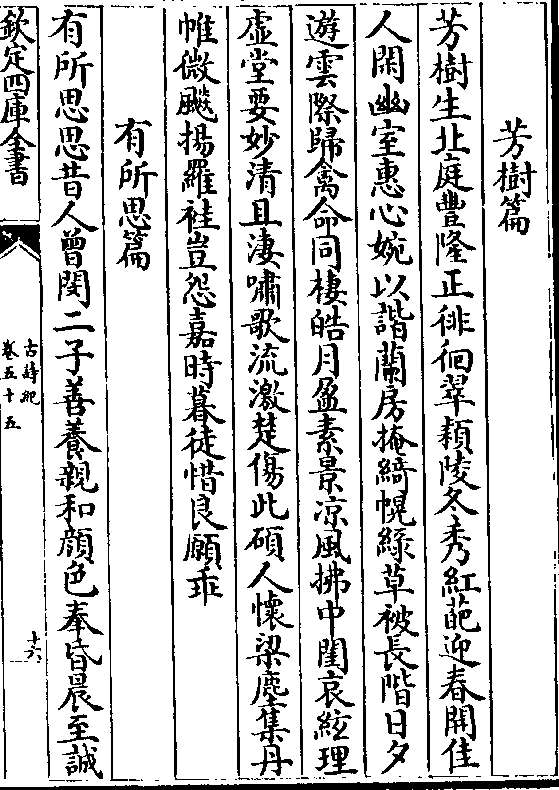 芳樹篇
芳樹生北庭豐隆正徘徊翠穎陵冬秀紅葩迎春開佳
人閑幽室惠心婉以諧蘭房掩綺幌綠草被長階日夕
遊雲際歸禽命同棲皓月盈素景凉風拂中閨哀絃理
虛堂要妙清且淒嘯歌流激楚傷此碩人懷梁塵集丹
帷微飈揚羅袿豈怨嘉時暮徒惜良願乖
有所思篇
有所思思昔人曾閔二子善養親和顔色奉昏晨至誠
欽定四庫全書
古詩紀
卷五十五
十六